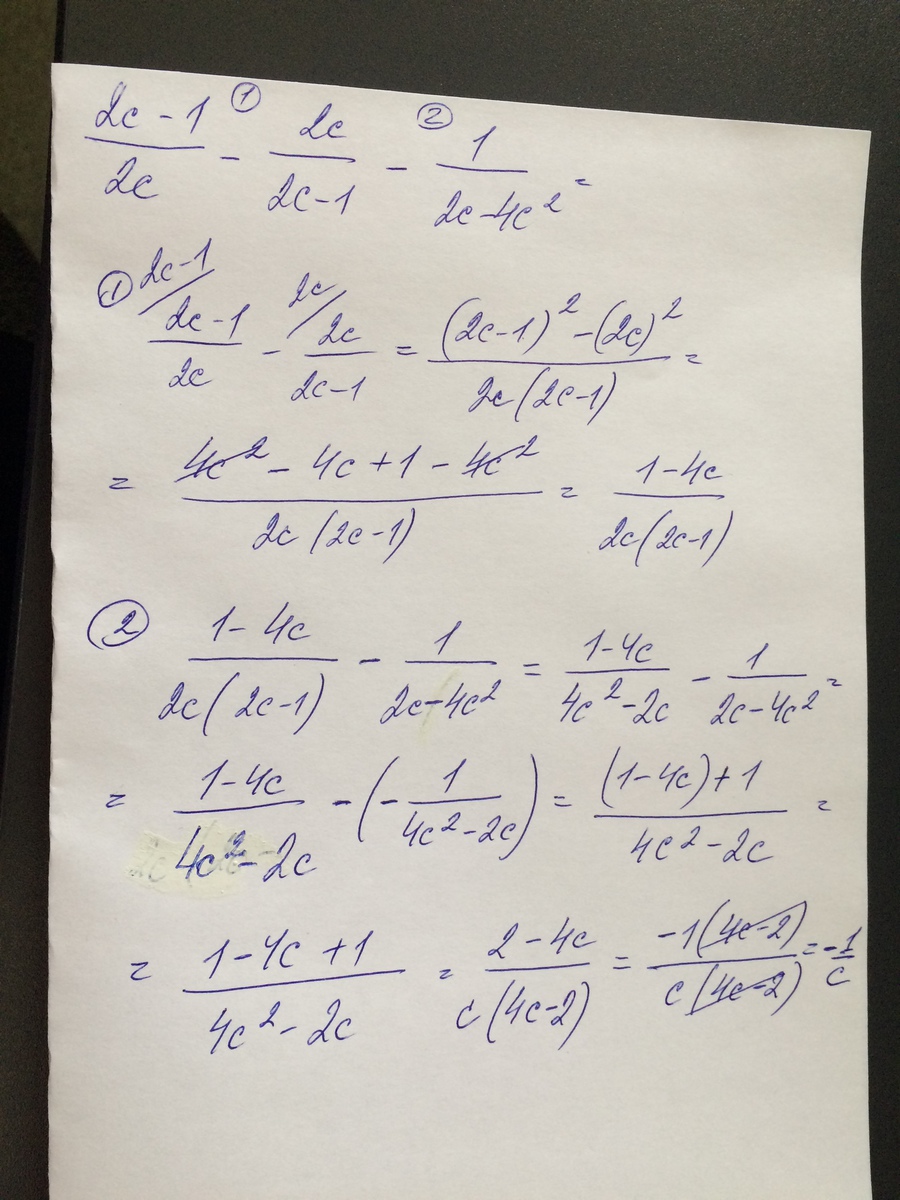 (2c - 1)/(2c) ① - (2c)/(2c-1) ② - 1/(2c-4c²) =
① 2c-1/ (2c-1)/(2c) - 2c/ (2c)/(2c-1) = ((2c-1)² - (2c)²)/(2c(2c-1)) =
= (4c² - 4c + 1 - 4c²)/(2c(2c-1)) = (1-4c)/(2c(2c-1))
② (1-4c)/(2c(2c-1)) - 1/(2c-4c²) = (1-4c)/(4c²-2c) - 1/(2c-4c²) =
= (1-4c)/(4c²-2c) - (- 1/(4c²-2c)) = ((1-4c)+1)/(4c²-2c) =
= (1-4c+1)/(4c²-2c) = (2-4c)/(c(4c-2)) = (-1(4c-2))/(c(4c-2)) = -1/c